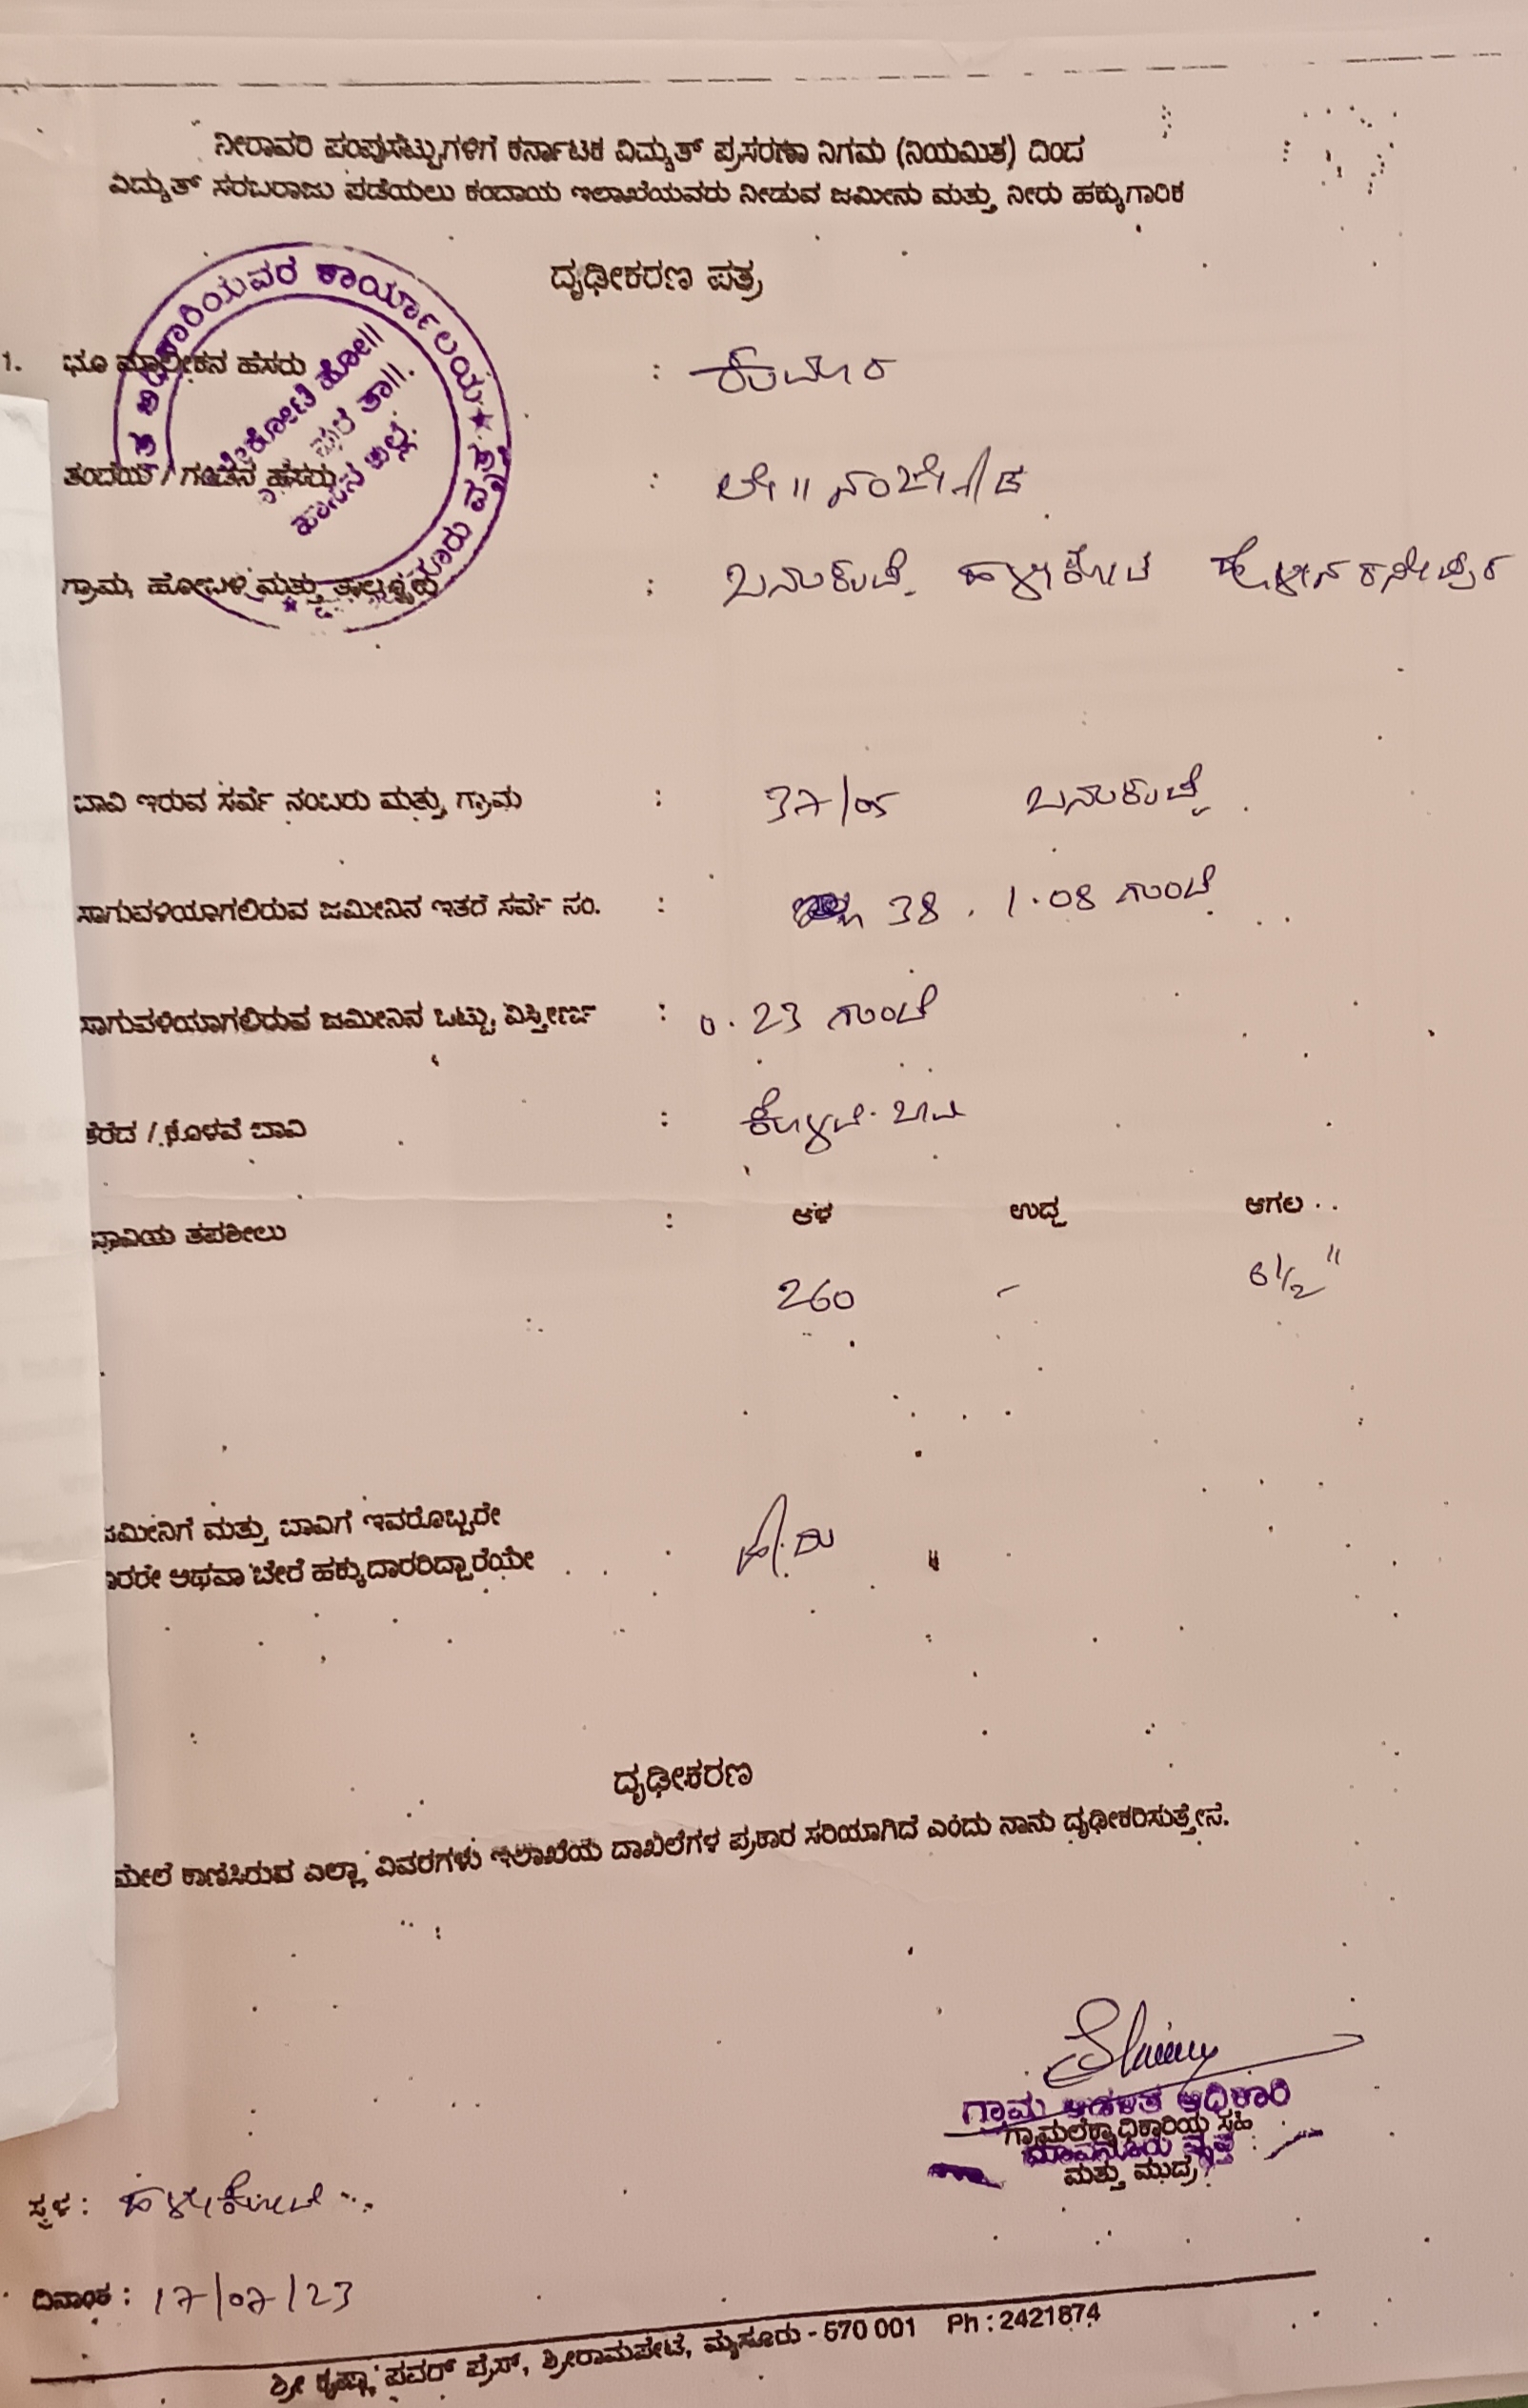 ನೀರಾವರಿ ಪಂಪುಸೆಟ್ಟುಗಳಿಗೆ ಕರ್ನಾಟಕ ವಿದ್ಯುತ್ ಪ್ರಸರಣಾ ನಿಗಮ (ನಿಯಮಿತ) ದಿಂದ
ವಿದ್ಯುತ್ ಸರಬರಾಜು ಪಡೆಯಲು ಕಂದಾಯ ಇಲಾಖೆಯವರು ನೀಡುವ ಜಮೀನು ಮತ್ತು ನೀರು ಹಕ್ಕುಗಾರಿಕೆ
ದೃಢೀಕರಣ ಪತ್ರ
1. ಭೂ ಮಾಲೀಕನ ಹೆಸರು : ಕುಮಾರ
ತಂದೆಯ / ಗಂಡನ ಹೆಸರು : ಲೇ॥ ನಂಜೇಗೌಡ
ಗ್ರಾಮ, ಹೋಬಳಿ ಮತ್ತು ತಾಲ್ಲೂಕು : ಬನುಕುಪ್ಪೆ ಹಳ್ಳೀಕೋಟೆ
ಬಾವಿ ಇರುವ ಸರ್ವೆ ನಂಬರು ಮತ್ತು ಗ್ರಾಮ : 37/05 ಬನುಕುಪ್ಪೆ
ಸಾಗುವಳಿಯಾಗಲಿರುವ ಜಮೀನಿನ ಇತರೆ ಸರ್ವೆ ನಂ. : 38 . 1.08 ಗುಂಟೆ
ಸಾಗುವಳಿಯಾಗಲಿರುವ ಜಮೀನಿನ ಒಟ್ಟು ವಿಸ್ತೀರ್ಣ : 0.23 ಗುಂಟೆ
ತೆರೆದ / ಕೊಳವೆ ಬಾವಿ : ಕೊಳವೆ ಬಾವಿ
ಬಾವಿಯ ತಪಶೀಲು : ಆಳ ಉದ್ದ ಅಗಲ
260 - 6 1/2 "
ಜಮೀನಿಗೆ ಮತ್ತು ಬಾವಿಗೆ ಇವರೊಬ್ಬರೇ
ಾರರೇ ಅಥವಾ ಬೇರೆ ಹಕ್ಕುದಾರರಿದ್ದಾರೆಯೇ ಹೌದು
ದೃಢೀಕರಣ
ಮೇಲೆ ಕಾಣಿಸಿರುವ ಎಲ್ಲಾ ವಿವರಗಳು ಇಲಾಖೆಯ ದಾಖಲೆಗಳ ಪ್ರಕಾರ ಸರಿಯಾಗಿದೆ ಎಂದು ನಾನು ದೃಢೀಕರಿಸುತ್ತೇನೆ.
ಗ್ರಾಮ ಆಡಳಿತ ಅಧಿಕಾರಿ
ಗ್ರಾಮಲೆಕ್ಕಾಧಿಕಾರಿಯ ಸಹಿ
ಮತ್ತು ಮುದ್ರೆ
ಸ್ಥಳ : ಹಳ್ಳೀಕೋಟೆ
ದಿನಾಂಕ : 17/07/23
ಶ್ರೀ ಕೃಷ್ಣಾ ಪವರ್ ಪ್ರೆಸ್, ಶ್ರೀರಾಮಪೇಟೆ, ಮೈಸೂರು - 570 001 Ph : 2421874